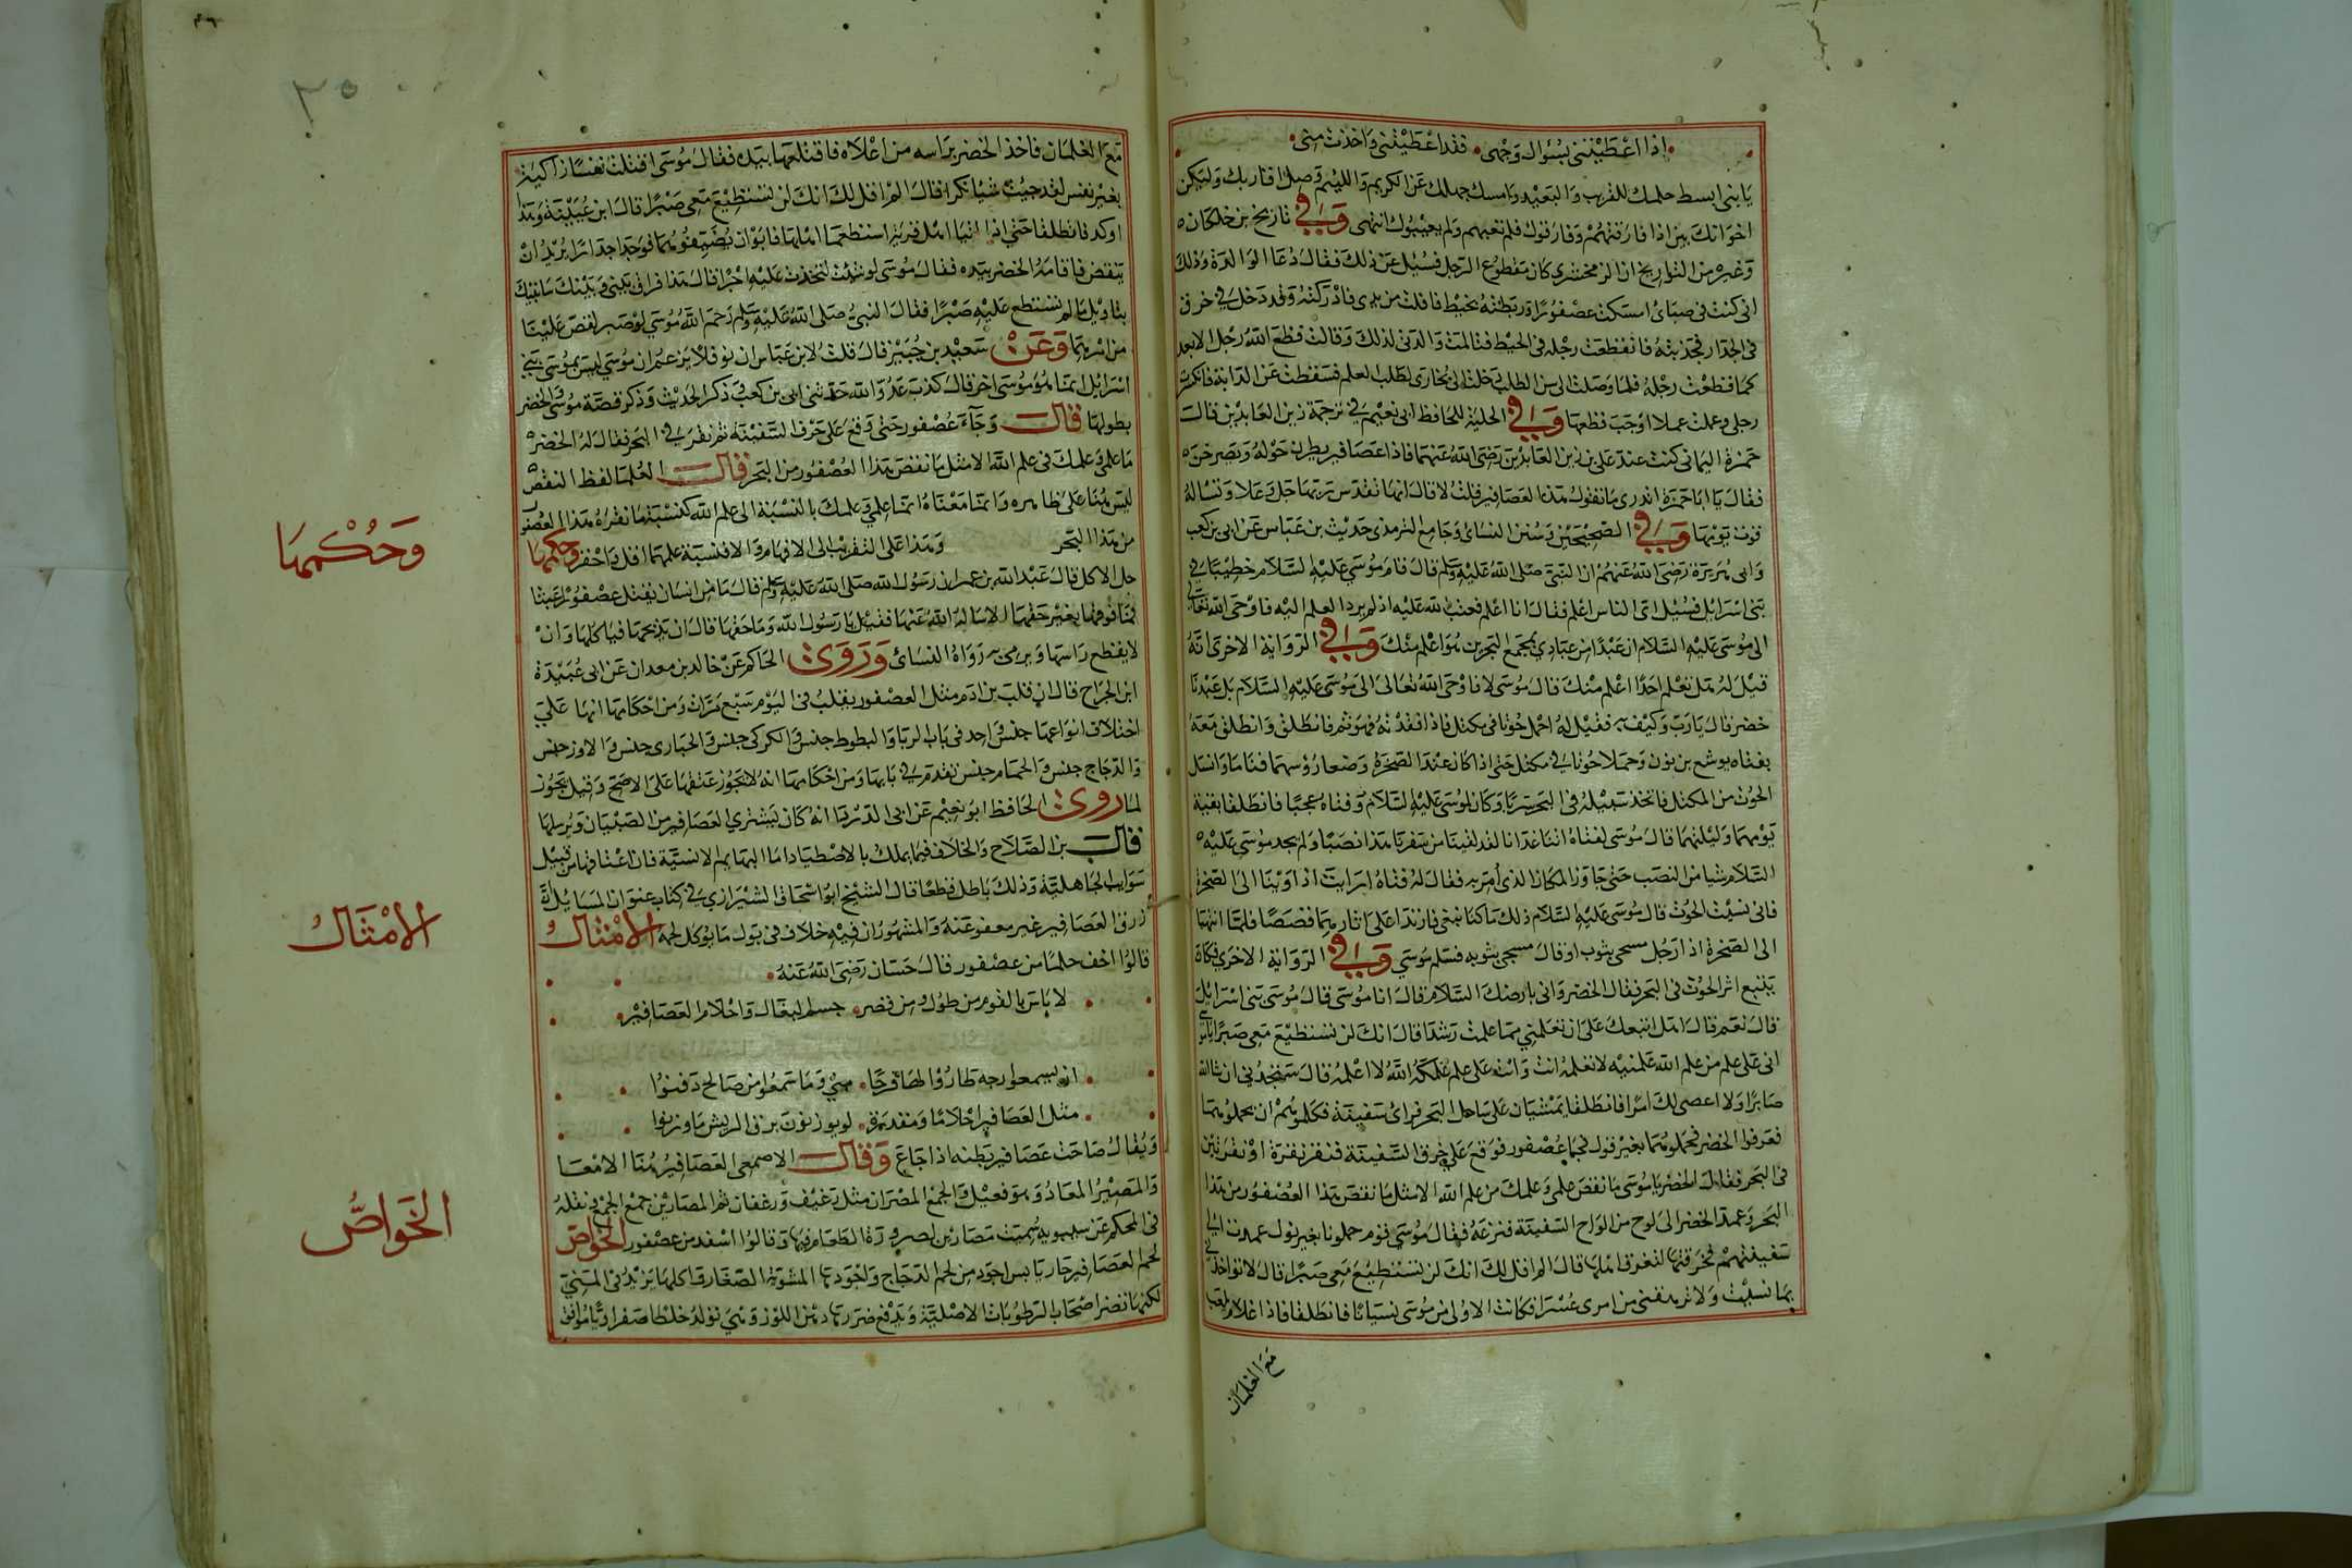 اذا اعطيتنى بسؤال وجهى فقد اعطيتنى واخذت منى
يا بنى ابسط حلمك للقريب والبعيد وامسك جهلك عن الكريم واللئيم وصل اقاربك وليكن
اخوانك من اذا فارقتهم وفارقوك فلم تعبهم ولم يعيبوك انتهى وفي تاريخ بن خلكان
وغيره من التواريخ ان الزمخشري كان مقطوع الرجل فسئل عن ذلك فقال دعا الوالدة وذلك
انى كنت فى صباى امسكت عصفورا وربطته بخيط فافلت من يدى فادركته وقد دخل في خرق
فى الجدار فجذبته فانقطعت رجله فى الخيط فتالمت والدتى لذلك وقالت قطع الله رجل الابعد
كما قطعت رجله فلما وصلت الى سن الطلب رحلت الى بخارى لطلب العلم فسقطت عن الدابة فانكسرت
رجلى وعملت عملا اوجب قطعها وفي الحلية للحافظ ابى نعيم في ترجمة زين العابدين قالت
حمزة اليمانى كنت عند على بن زين العابدين رضى الله عنهما فاذا عصافير يطرن حوله ويصرخن
فقال يا ابا حمزة اتدرى ما تقول هذه العصافير قلت لا قال انها تقدس ربها جل وعلا وتساله
قوت يومها وفي الصحيحين وسنن النسائ وجامع الترمذى حديث بن عباس عن ابى بن كعب
وابى هريرة رضى الله عنهم ان النبى صلى الله عليه وسلم قال قام موسى عليه السلام خطيبا في
بنى اسرائيل فسئل اى الناس اعلم فقال انا اعلم فعتب الله عليه اذ لم يرد العلم اليه فاوحى الله تعالى
الى موسى عليه السلام ان عبدا من عبادي بمجمع البحرين هو اعلم منك وفي الرواية الاخرى انه
قيل له هل تعلم احدا اعلم منك قال موسى لا فاوحى الله تعالى الى موسى عليه السلام بل عبدنا
خضر قال يا رب وكيف به فقيل له احمل حوتا فى مكتل فاذا فقدته فهو ثم فانطلق وانطلق معه
بفتاه يوشع بن نون وحملا حوتا في مكتل حتى اذا كان عند الصخرة وضعا رؤسهما فناما وانسل
الحوت من المكتل فاتخذ سبيله فى البحر سربا وكان لموسى عليه السلام وفتاه عجبا فانطلقا بقية
يومهما وليلتهما قال موسى لفتاه اتنا غدانا لقد لقينا من سفرنا هذا نصبا ولم يجد موسى عليه
السلام شيا من النصب حتى جاوز المكان الذى أمر به فقال له فتاه ارايت اذ اوينا الى الصخرة
فانى نسيت الحوت قال موسى عليه السلام ذلك ما كنا نبغى فارتدا على اثارهما قصصا فلما انتهيا
الى الصخرة اذا رجل مسجى بثوب او قال مسجى بثوبه فسلم موسى وفي الرواية الاخرى فكان
يتبع اثر الحوت فى البحر فقال الخضر وانى بارضك السلام قال انا موسى قال موسى بنى اسرائيل
قال نعم قال هل اتبعك على ان تعلمني مما علمت رشدا قال انك لن تستطيع معى صبرا يا موسى
انى على علم من علم الله علمنيه لا تعلمه انت وانت على علم علمكه الله لا اعلمه قال ستجدنى ان شا الله
صابرا ولا اعصى لك امرا فانطلقا يمشيان على ساحل البحر فراى سفينة فكلموهم ان يحملوهما
فعرفوا الخضر فحملوهما بغير قول فجا عصفور فوقع على حرف السفينة فنقر نقرة او نقرتين
فى البحر فقال الخضر يا موسى ما نقص علمى وعلمك من علم الله الا مثل ما نقص هذا العصفور من هذا
البحر وعمد الخضر الى لوح من الواح السفينة فنزعه فقال موسى قوم حملونا بغير نول عمدت الى
سفينتهم فخرقتها لتغرق اهلها قال الم اقل لك انك لن تستطيع معى صبرا قال لا تواخذنى
بما نسيت ولا ترهقنى من امرى عسرا فكانت الاولى من موسى نسيانا فانطلقا فاذا غلام يلعب
مع الغلمان
مع الغلمان فاخذ الخضر براسه من اعلاه فاقتلعها بيده فقال موسى اقتلت نفسا زاكية
بغير نفس لقد جيت شيا نكرا قال الم اقل لك انك لن تستطيع معى صبرا قال ابن عيينة وهذا
اوكد فانطلقا حتى اذا اتيا اهل قرية استطعما اهلها فابوا ان يضيفوهما فوجدا جدارا يريد ان
ينقض فاقامه الخضر بيده فقال موسى لو شئت لتخذت عليه اجرا قال هذا فراق بينى وبينك سانبيك
بتاويل ما لم تستطع عليه صبرا فقال النبى صلى الله عليه وسلم رحم الله موسى لو صبر لقص علينا
من امرهما وعن سعيد بن جبير قال قلت لابن عباس ان نوفلا يزعم ان موسي ليس بموسى بني
اسرائيل انما هو موسى اخر قال كذب عدو الله حدثنى ابى بن كعب وذكر الحديث وذكر قصة موسى والخضر
بطولها قال وجآء عصفور حتى وقع على حرف السفينة ثم نقر في البحر فقال له الخضر
ما علمى وعلمك فى علم الله الا مثل ما نقص هذا العصفور من البحر قال العلما لفظ النقص
ليس هنا على ظاهره وانما معناه انما علمي وعلمك بالنسبة الى علم الله كنسبة ما نقره هذا العصفور
من هذا البحر وهذا على التقريب الى الافهام والا فنسبة علمهما اقل واحقر وحكمها
حل الاكل قال عبد الله بن عمر ان رسول الله صلى الله عليه وسلم قال ما من انسان يقتل عصفورا عبثا
فما فوقها بغير حقها الا ساله الله عنها فقيل يا رسول الله وما حقها قال ان يذبحها فياكلها وان
لا يقطع راسها ويرمى به رواه النسائ وروى الحاكم عن خالد بن معدان عن ابى عبيدة
ابن الجراح قال ان قلب بن ادم مثل العصفور يقلب فى اليوم سبع مرات ومن احكامها انها على
اختلاف انواعها جنس واحد فى باب الربا والبطوط جنس والكركى جنس والحبارى جنس والاوز جنس
والدجاج جنس والحمام جنس تقدم في بابها ومن احكامها انه لا يجوز عتقها على الاصح وقيل يجوز
لما روى الحافظ ابو نعيم عن ابى الدردا انه كان يشترى العصافير من الصبيان ويرسلها
قال بن الصلاح والخلاف فيما يملك بالاصطياد اما البهايم الانسية فان اعتاقها من قبيل
سوايب الجاهلية وذلك باطل قطعا قال الشيخ ابو اسحاق الشيرازي في كتاب عنوان المسايل ان
زرق العصافير غير معفو عنه والمشهور ان فيه خلاف فى بول ما يوكل لحمه الامثال
قالوا اخف حلما من عصفور قال حسان رضى الله عنه
لا باس بالقوم من طول ومن قصر جسم البغال واحلام العصافير
ان يسمعوا ريحه طاروا لها فرحا منى وما سمعوا من صالح دفنوا
مثل العصافير احلاما ومقدرة لو يوزنون بزق الريش ما وزنوا
ويقال صاحت عصافير بطنه اذا جاع وقال الاصمعى العصافير هنا الامعا
والمصير المعا وهو فعيل والجمع المصران مثل رغيف ورغفان ثم المصارين جمع الجمع نقله
فى المحكم عن سيبويه سميت مصارين لصيرورة الطعام فيها وقالوا اسفد من عصفور الخواص
لحم العصافير حار يابس اجود من لحم الدجاج واجودها المشوية الصغار واكلها يزيد فى المني
لكنها تضر اصحاب الرطوبات الاصلية ويدفع ضررها دهن اللوز وهي تولد خلطا صفراويا يوافق
وحكمها
الامثال
الخواص